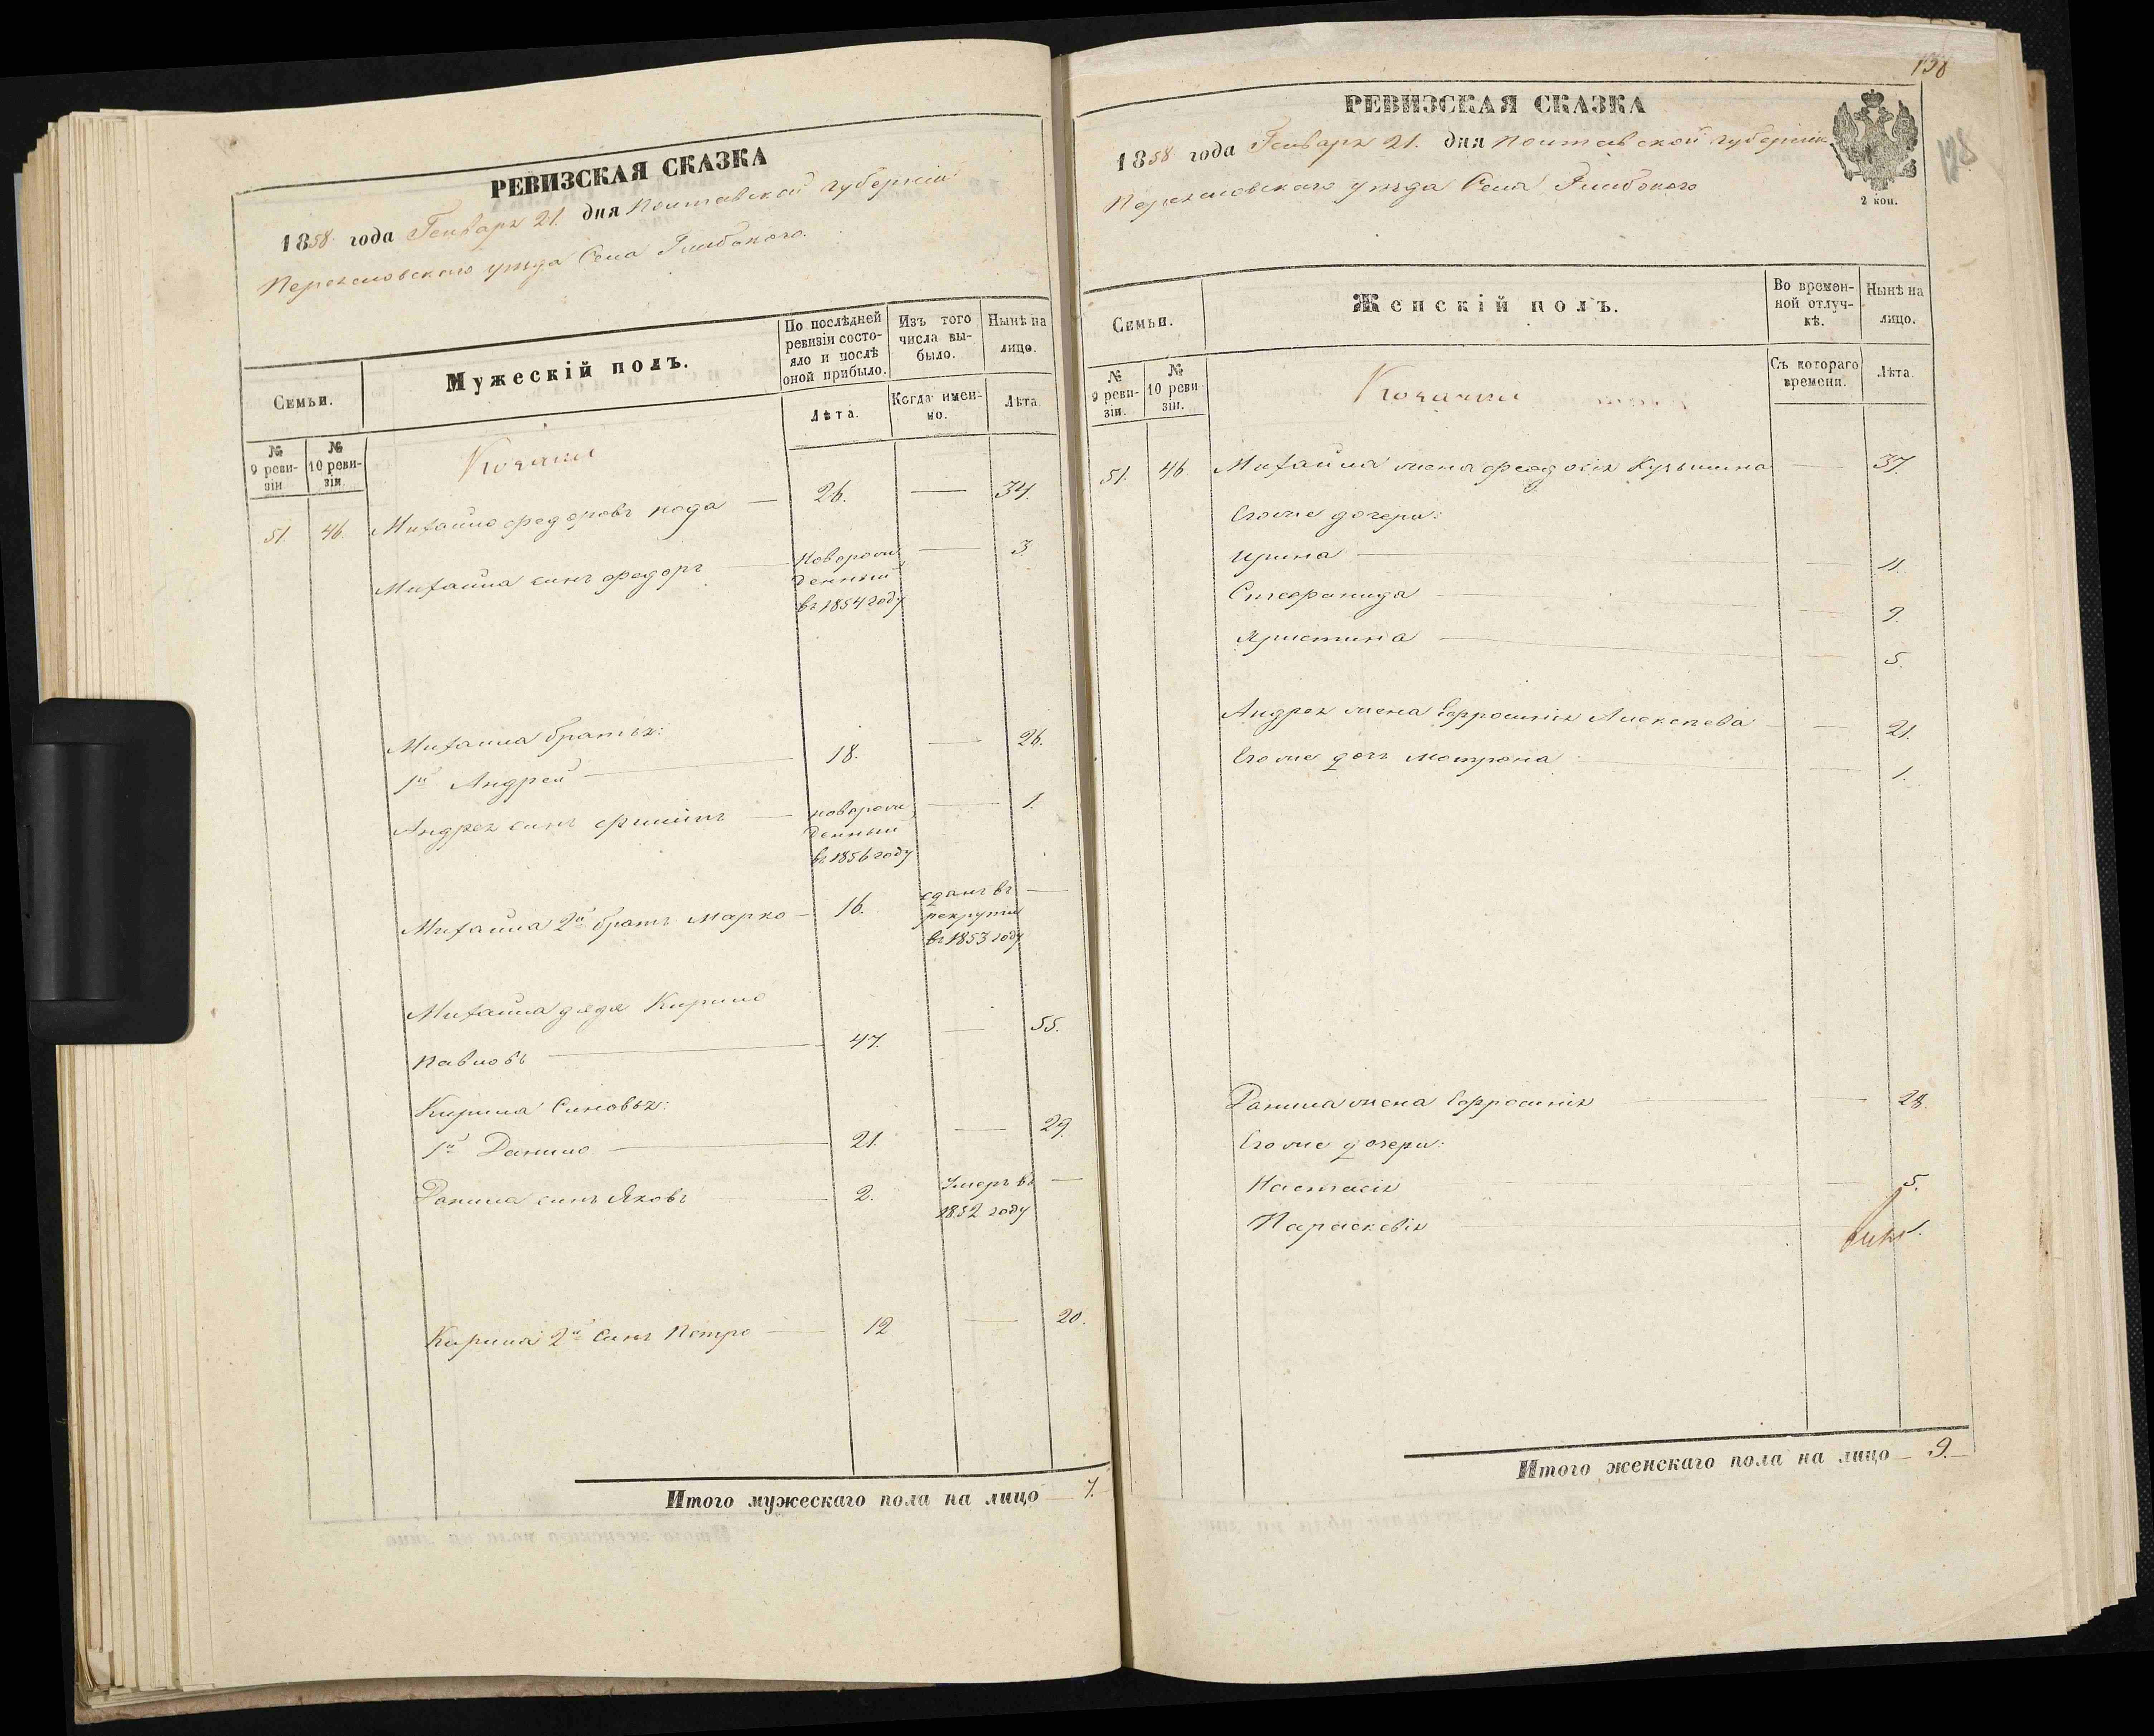 РЕВИЗСКАЯ СКАЗКА
1858 года Генваря 21. дня Полтавской губерніи
Переяславского уезда Села Глибокого.
Семьи.
Мужескій полъ.
По послѣдней ревизіи состояло и послѣ оной прибыло.
Изъ того числа выбыло.
Нынѣ на лицо.
Лѣта.
Когда именно.
Лѣта.
№ 9 ревизіи
№ 10 ревизіи.
Козаки
51. 46. Михайло Федоровъ 26. — 34.
Михайла синъ Федоръ новорожденный въ 1854 году — 3.
Михайла братья:
1й Андрей 18. — 26.
Андрея синъ Филипъ новорожденный въ 1856 году — 1.
Михайла 2й братъ Марко — 16. сданъ въ рекруты въ 1853 году —
Михайла дядя Кирило
Павловъ 47. — 55.
Кирила Синовья:
1й Данило 21. — 29.
Данила синъ Яковъ 2. Умеръ въ 1852 году —
Кирила 2й Синъ Петро 12 — 20.
Итого мужескаго пола на лицо 7.
138
РЕВИЗСКАЯ СКАЗКА
1858 года Генваря 21. дня Полтавской губерніи
2 коп.
128
Переяславского уезда Села Глибокого
Семьи.
Женскій полъ.
Во временной отлучкѣ.
Нынѣ на лицо.
№ 9 ревизіи.
№ 10 ревизіи.
Съ котораго времени.
Лѣта.
Козачки
51. 46. Михайла жена Феодосія Кузьмина — 37.
Егоже дочери:
Ирина — 11.
Стефанида — 9.
Христина — 5.
Андрея жена Ефросинія Алексеева — 21.
Егоже дочь Мотрона — 1.
Данила жена Ефросинія — 28.
Егоже дочери:
Настасія — 5.
Параскевія 1.
Итого женскаго пола на лицо — 9.